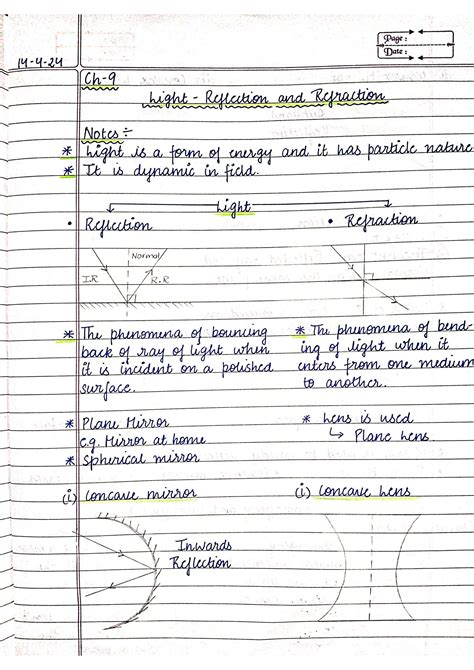 Page :
Date :
14-4-24
Ch-9
Light - Reflection and Refraction
Notes :-
* Light is a form of energy and it has particle nature
* It is dynamic in field.
Light
• Reflection
• Refraction
Normal
I.R
R.R
* The phenomena of bouncing
back of ray of light when
it is incident on a polished
surface.
* The phenomena of bend-
ing of light when it
enters from one medium
to another.
* Plane Mirror
e.g. Mirror at home
* Spherical mirror
* Lens is used
↳ Plane Lens
(i) Concave mirror
(i) Concave Lens
Inwards
Reflection